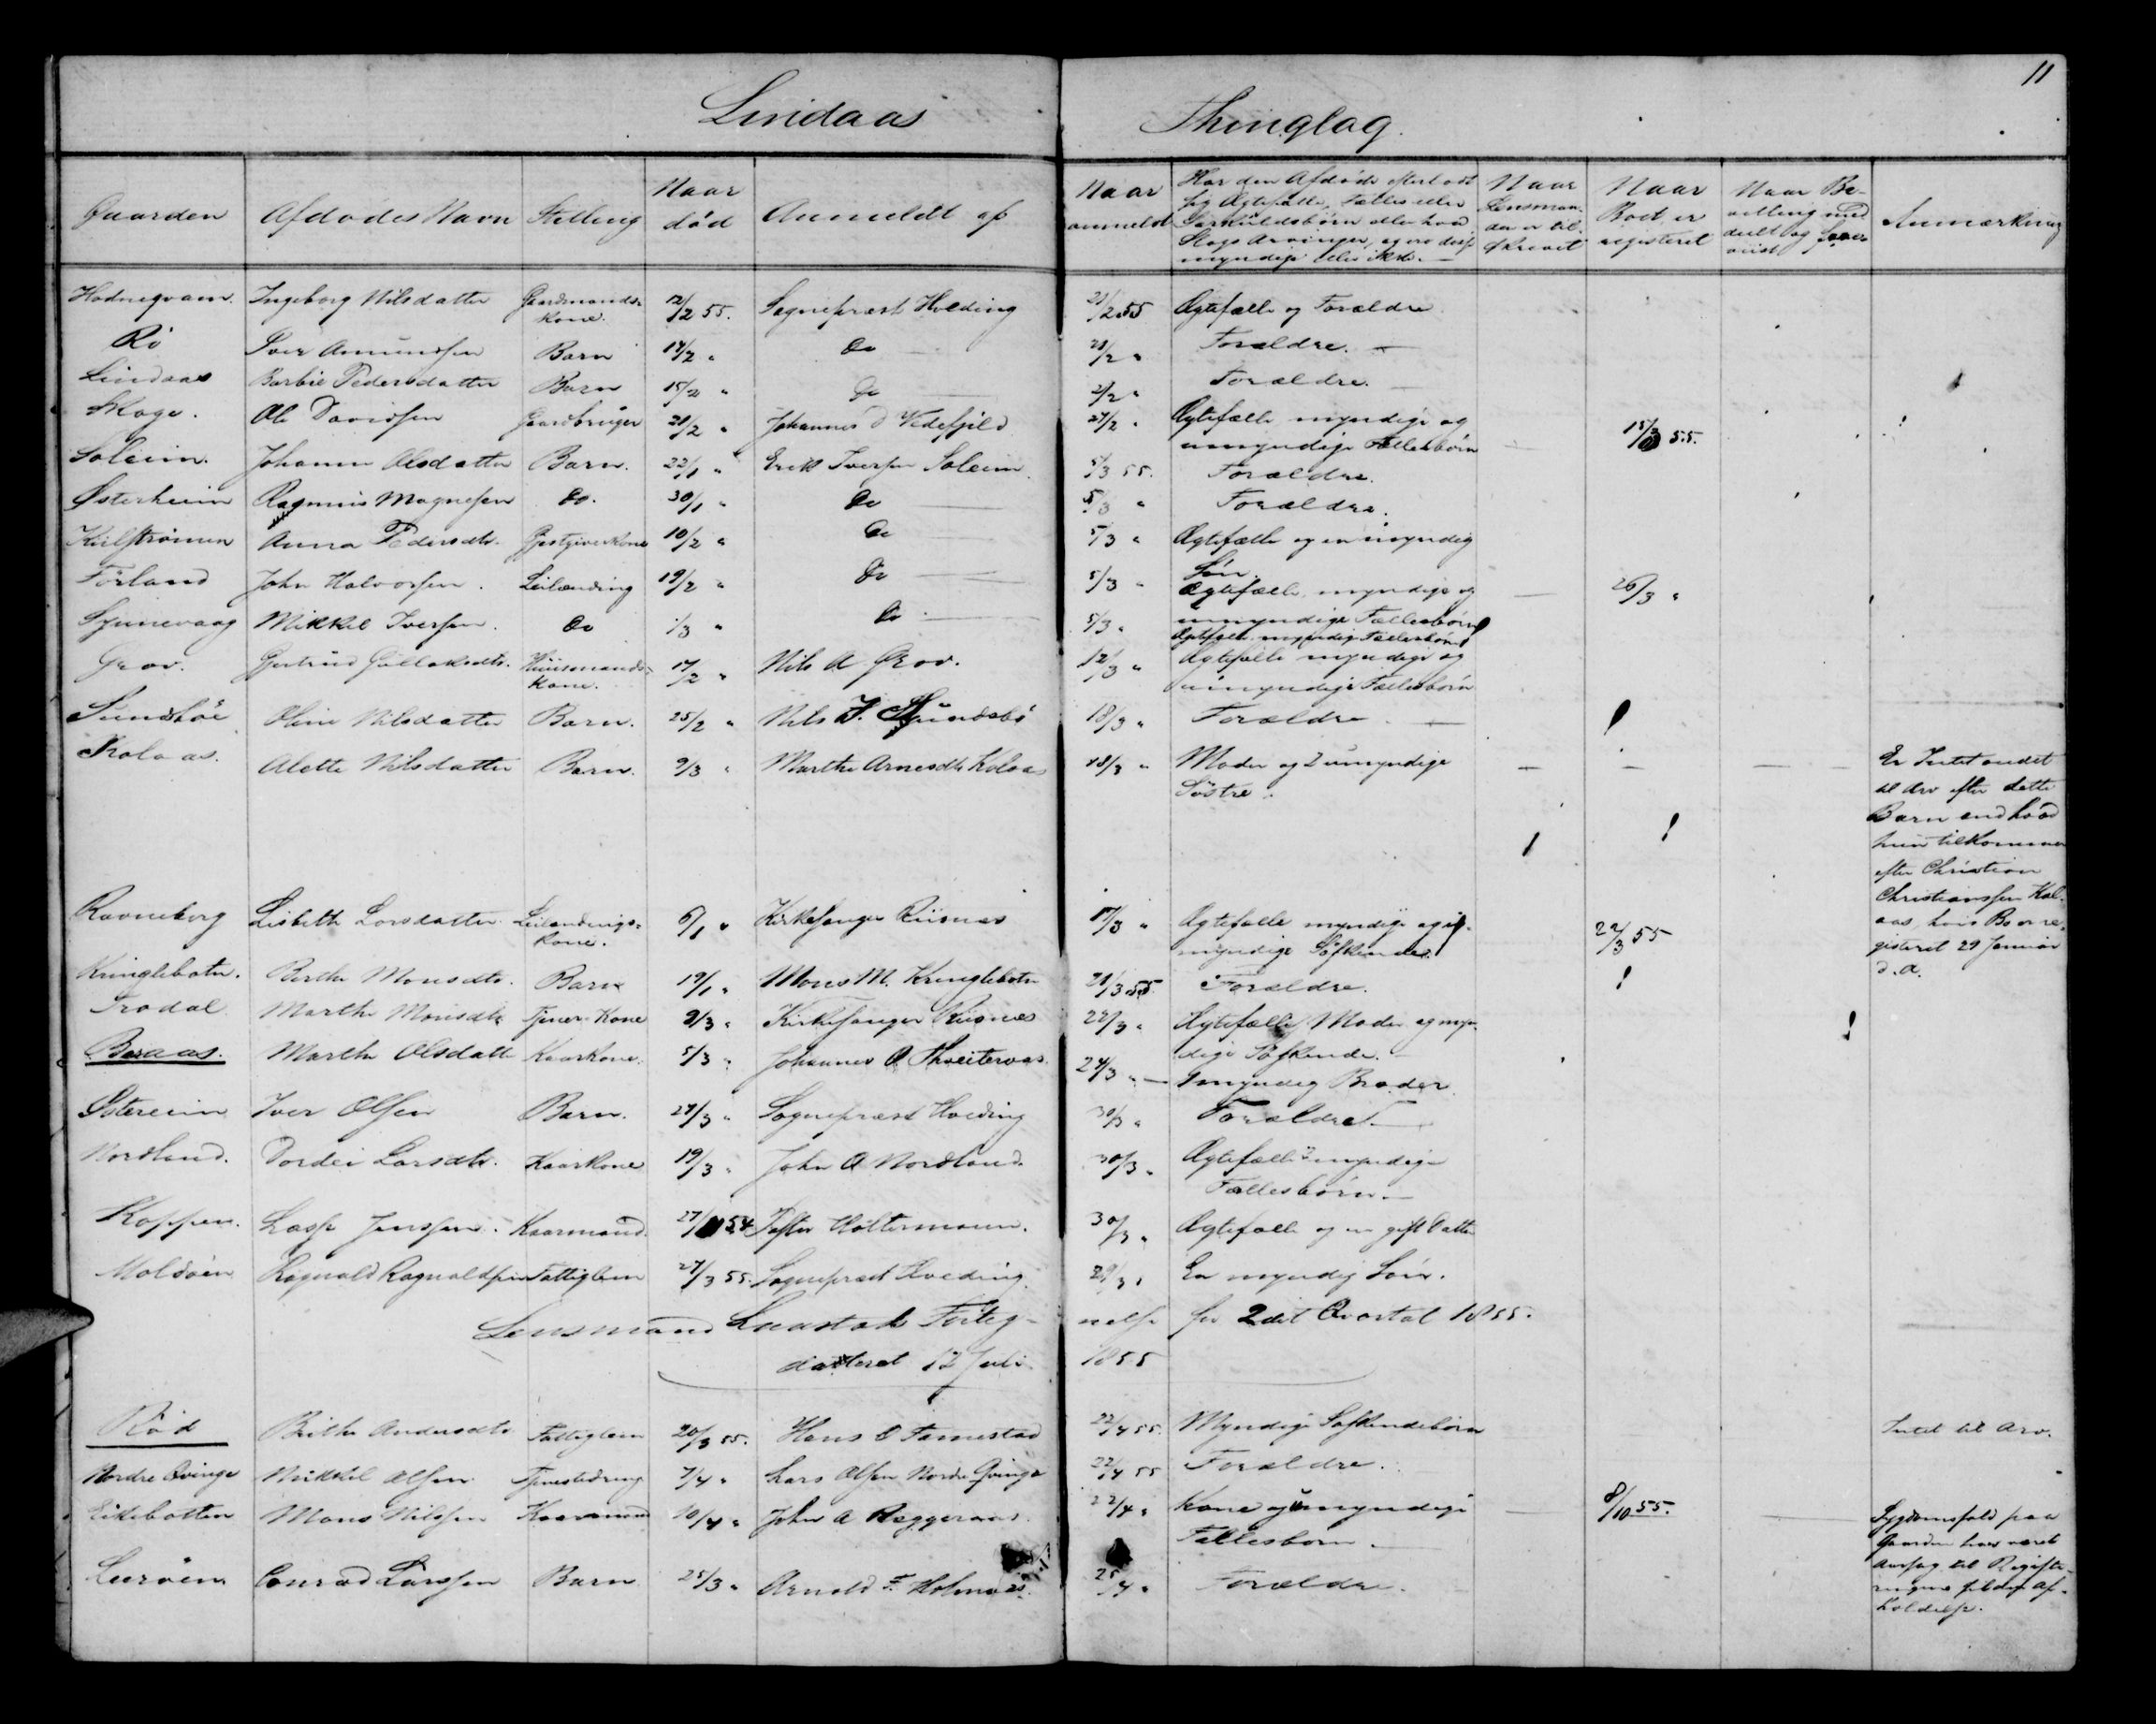 11
Lindaas Thinglag.
Gaarden Afdødes Navn Stilling Naar død Anmeldt af Naar anmeldt Har den Afdøde efterladt sig Ægtefælle, Fælles eller Særkuldsbørn eller hvad Slags Arvinger, og ere disse myndige eller ikke.— Naar Lensmanden er tilskrevet Naar Boet er registeret Naar Bevilling meddeelt og foreviist Anmærkning
Hodneqvam. Ingeborg Nilsdatter Gaardmands-kone. 12/2 55. Sognepræst Hveding 21/2 55 Ægtefælle og Forældre
Rö Iver Amundsen Barn 14/2 " Do 21/2 " Forældre. —
Lindaas Barbie Pedersdatter Barn 15/2 " Do 21/2 " Forældre. —
Skage. Ole Davidsen Gaardbruger 21/2 " Johannes D Vedefjeld 27/2 " Ægtefælle, myndige og umyndige Fællesbörn — 15/3 55.
Soleim. Johanne Olsdatter Barn. 22/1 " Erik Iversen Soleim 5/3 55. Forældre.
Østerheim Ragnuis Magnesen Do. 30/1 " Do — 5/3 " Forældre.
Kielströmen Anna Pedersdtr. Gjestgiverkone 10/2 " Do 5/3 " Ægtefælle og en myndig Sön.
Förland John Halvorsen. Leilænding 19/2 " Do — 5/3 " Ægtefælle, myndige og umyndige Fællesbörn — 26/3 "
Synnevaag Mikkel Iversen. Do 1/3 " Do — 5/3 " Ægtefælle myndig Fællesbörn
Grov. Gjertrud Gullaksdtr. Huusmands-kone. 17/2 " Nils A Grov. 12/3 " Ægtefælle myndige og umyndige Fællesbörn
Sundsböe Oline Nilsdatter Barn. 25/2 " Nils J. Sundsbö 18/3 " Forældre. —
Kolaas. Alette Nilsdatter Barn. 9/3 " Marthe Arnesdtr Kolaas 18/3 " Moder og 2 umyndige Söstre. — — — Er Intet andet til Arv efter dette Barn end hvad hun tilkommer efter Christian Christianssen Kolaas, hvis Bo er registeret 29 Januar d. A.
Ravneberg Lisbeth Larsdatter Leilændings-kone. 6/1 " Kirkesanger Riisnes 17/3 " Ægtefælle myndige og umyndige Södskende. 22/3 55
Kringlebotn. Berthe Monsdtr. Barn 19/1 " Mons M. Kringlebotn 21/3 55 Forældre.
Trodal Marthe Monsdtr Tjener-Kone 9/3 " Kirkesanger Riisnes 22/3 " Ægtefælle, Moder og myndige Södskende. —
Beraas. Marthe Olsdatter Kaarkone. 5/3 " Johannes O Thveiteraas. 24/3 " — 1 myndig Broder.
Østereim Iver Olsen Barn. 27/3 " Sognepræst Hveding 30/3 " Forældre. —
Nordland. Dordei Larsdtr. Kaarkone 19/3 " John A Nordland. 30/3 " Ægtefælle 2 myndige Fællesbörn. —
Koppen. Lasse Jenssen. Kaarmand. 27/11 54 Jesper Holtermann. 30/3 " Ægtefælle og en gift Datter
Moldöen Ragnald Ragnaldsen Fattiglem 27/3 55. Sognepræst Hveding. 29/3 " En myndig Sön.
Lensmand Laastads Forteg-nelse for 2det Qvartal 1855.
datteret 12 Juli 1855
Röd Brithe Andersdtr Fattiglem 20/3 55. Hans O Fannestad 22/4 55. Myndige Södskendebörn Intet til Arv.
Nordre Qvinge Mikkel Olsen Tjenestedreng 7/4 " Lars Olsen Nordre Qvinge 22/4 55 Forældre.
Eikebotten Mons Nilssen Kaarmand 10/4 " John A Hæggeraas. 22/4 " Kone og umyndige Fællesbörn. — — 8/10 55. — Sygdomsfald paa Gaarden har været Aarsag til Registeringens sildige Afholdelse.
Leeröen Conrad Larssen Barn 25/3 " Arnold T. Holmaas. 25/4 " Forældre.